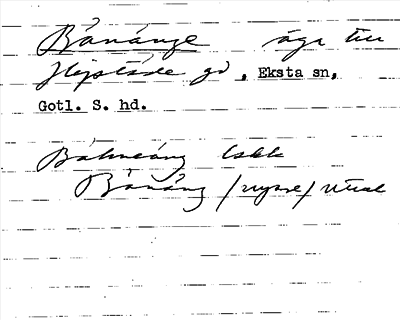 Bånänge äga till
Hejstäde gd, Eksta sn,
Gotl. S. hd.
Båhneäng Lskk
Bånäng /nyare/ uttal